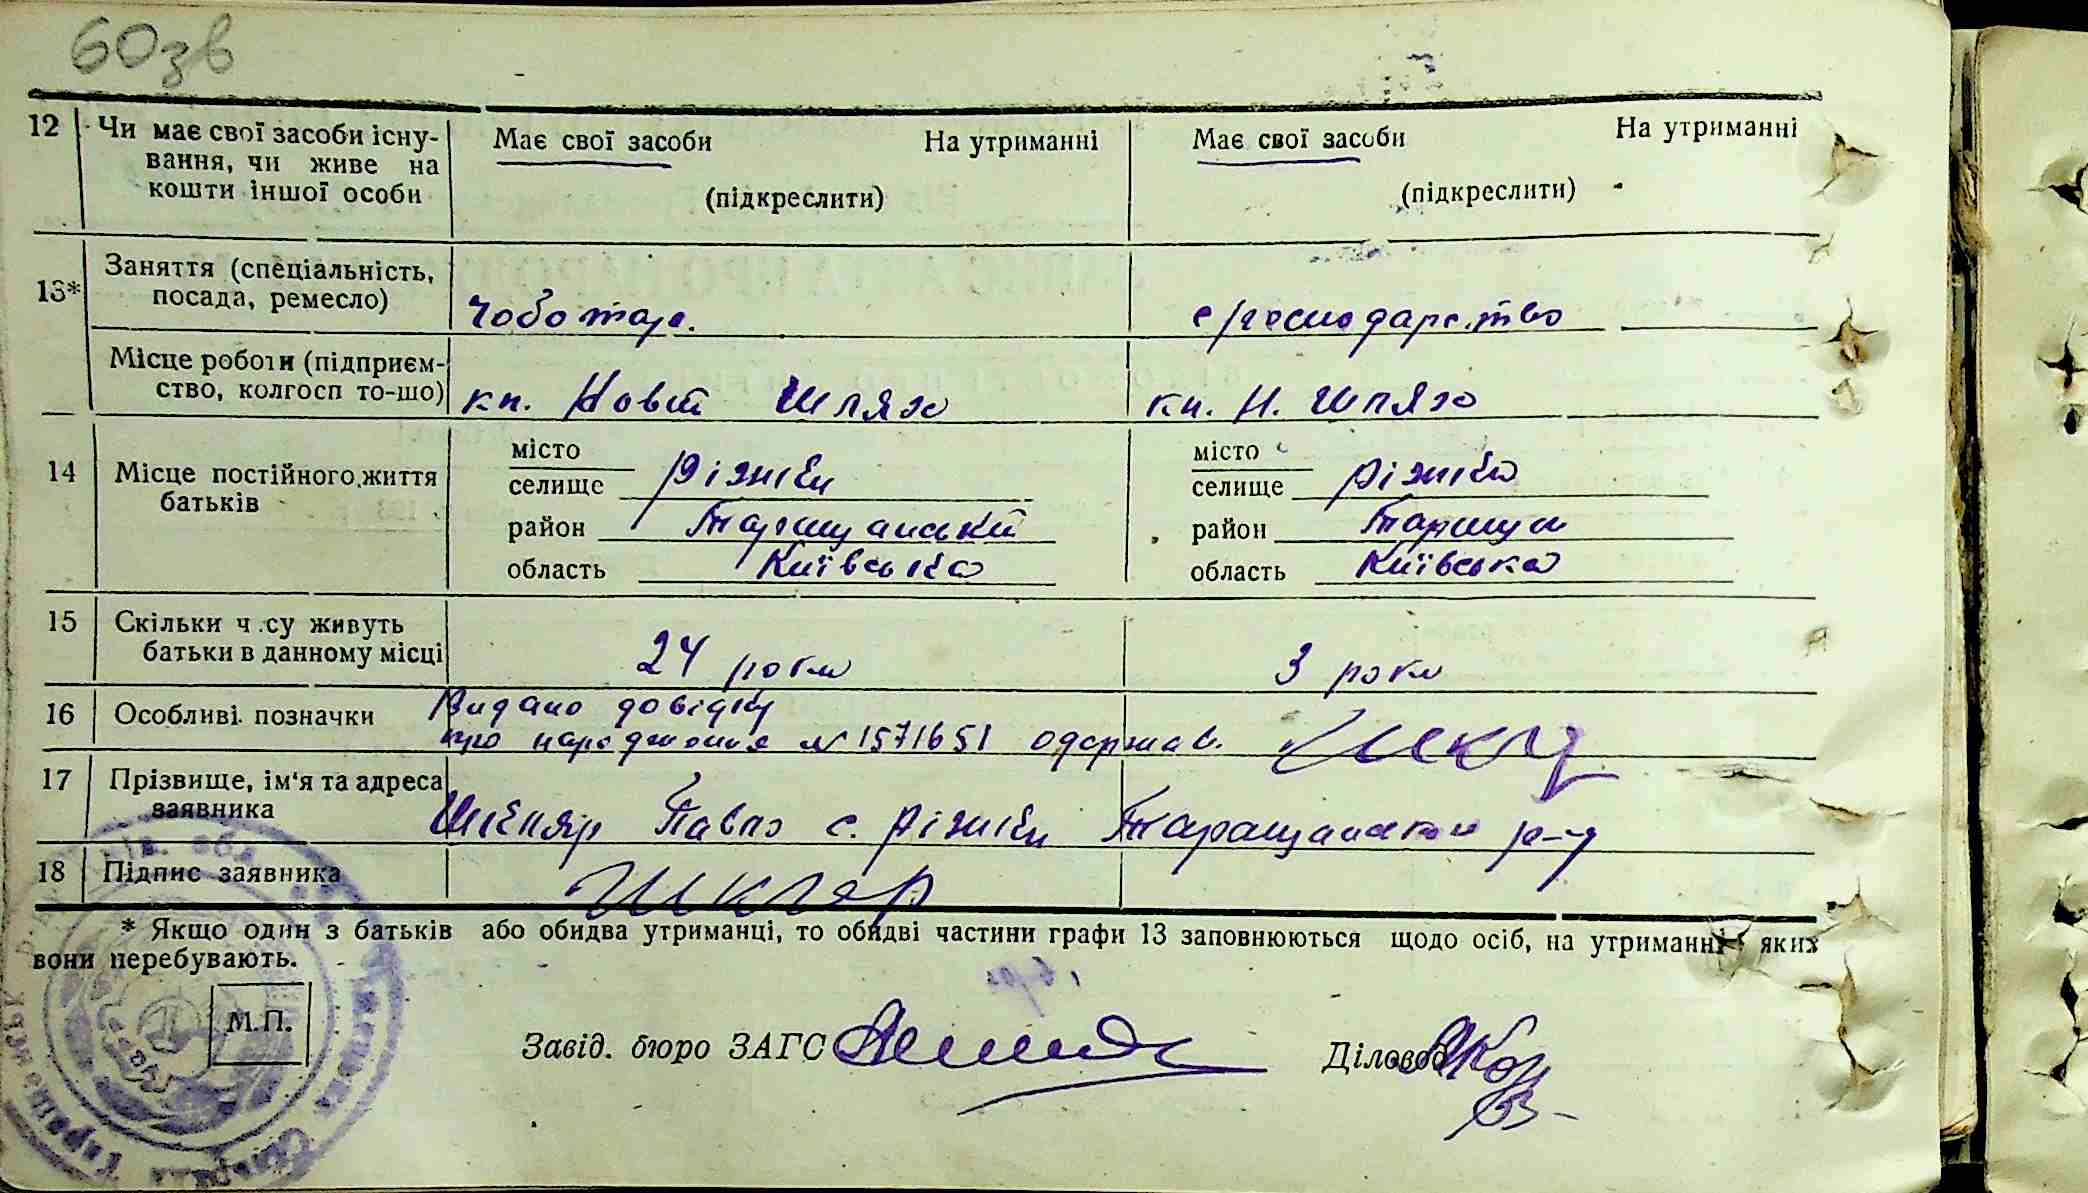 60зв
12 Чи має свої засоби існу- Має свої засоби На утриманні Має свої засоби На утриманні
вання, чи живе на
кошти іншої особи (підкреслити) (підкреслити)
13* Заняття (спеціальність,
посада, ремесло) Чоботар. с/господарство
Місце роботи (підприєм-
ство, колгосп то-що) кп. Новий Шлях кп. Н. Шлях
14 Місце постійного життя батьків
місто місто
селище Ріжки селище Ріжки
район Таращанський район Таращан
область Київська область Київська
15 Скільки ч су живуть
батьки в данному місці 24 роки 3 роки
16 Особливі позначки Видано довідку
про народження № 1571651 одержав.
17 Прізвище, ім'я та адреса
заявника Шкляр Павло с. Ріжки Таращанськог р-у
18 Підпис заявника Шкляр
* Якщо один з батьків або обидва утриманці, то обидві частини графи 13 заповнюються щодо осіб, на утриманні яких
вони перебувають.
М.П.
Завід. бюро ЗАГС Діловод